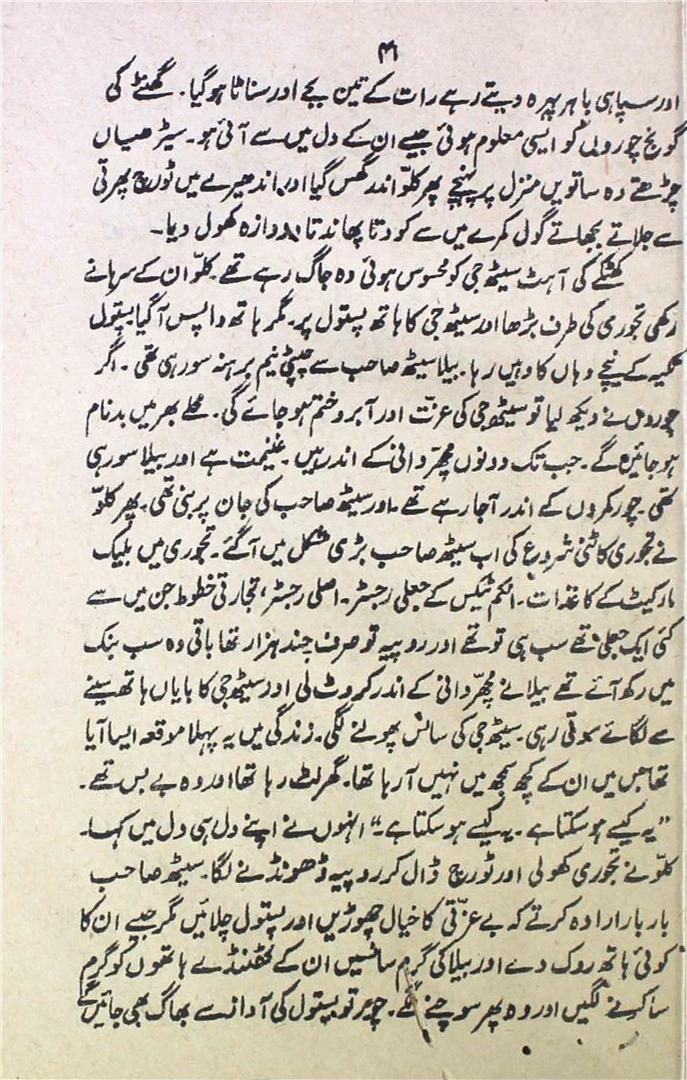 ۴۱
اور سپاہی باہر پہرہ دیتے رہے رات کے تین بجے اور سناٹا ہو گیا۔ گھنٹے کی
گونج چوروں کو ایسی معلوم ہوئی جیسے ان کے دل میں سے آئی ہو۔ سیڑھیاں
چڑھتے وہ ساتویں منزل پر پہنچے پھر کلّو اندر گھس گیا اور اندھیرے میں ٹورچ پھرتی
سے جلاتے بجھاتے گول کمرے میں سے کودتا پھاندتا دروازہ کھول دیا۔
کھٹکے کی آہٹ سیٹھ جی کو محسوس ہوئی وہ جاگ رہے تھے۔ کلّو ان کے سرہانے
رکھی تجوری کی طرف بڑھا اور سیٹھ جی کا ہاتھ پستول پر۔ مگر ہاتھ واپس آگیا پستول
تکیہ کے نیچے وہاں کا وہیں رہا۔ بیلا سیٹھ صاحب سے چمٹی نیم برہنہ سو رہی تھی۔ اگر
چوروں نے دیکھ لیا تو سیٹھ جی کی عزت اور آبرو ختم ہو جائے گی۔ محلے بھر میں بدنام
ہو جائیں گے۔ جب تک دونوں مچھّر دانی کے اندر ہیں۔ غنیمت ہے اور بیلا سو رہی
تھی۔ چور کمروں کے اندر آجا رہے تھے۔ اور سیٹھ صاحب کی جان پر بنی تھی۔ پھر کلّو
نے تجوری کاٹنی شروع کی اب سیٹھ صاحب بڑی مشکل میں آگئے۔ تجوری میں بلیک
مارکیٹ کے کاغذات۔ انکم ٹیکس کے جعلی رجسٹر۔ اصلی رجسٹر، تجارتی خطوط جن میں سے
کئی ایک جعلی تھے سب ہی تو تھے اور روپیہ تو صرف چند ہزار تھا باقی وہ سب بنک
میں رکھ آئے تھے بیلا نے مچھّر دانی کے اندر کروٹ لی اور سیٹھ جی کا بایاں ہاتھ سینے
سے لگائے سوتی رہی۔ سیٹھ جی کی سانس پھولنے لگی۔ زندگی میں یہ پہلا موقعہ ایسا آیا
تھا جس میں ان کے کچھ سمجھ میں نہیں آ رہا تھا۔ گھر لٹ رہا تھا اور وہ بے بس تھے۔
”یہ کیسے ہو سکتا ہے۔ یہ کیسے ہو سکتا ہے۔“ انہوں نے اپنے دل ہی دل میں کہا۔
کلّو نے تجوری کھولی اور ٹورچ ڈال کر روپیہ ڈھونڈنے لگا۔ سیٹھ صاحب
بار بار ارادہ کرتے کہ بے عزّتی کا خیال چھوڑیں اور پستول چلائیں مگر جیسے ان کا
کوئی ہاتھ روک دے اور بیلا کی گرم سانسیں ان کے ٹھنڈے ہاتھوں کو گرم
سا کرنے لگیں اور وہ پھر سوچنے لگے۔ چور تو پستول کی آواز سے بھاگ بھی جائیں گے